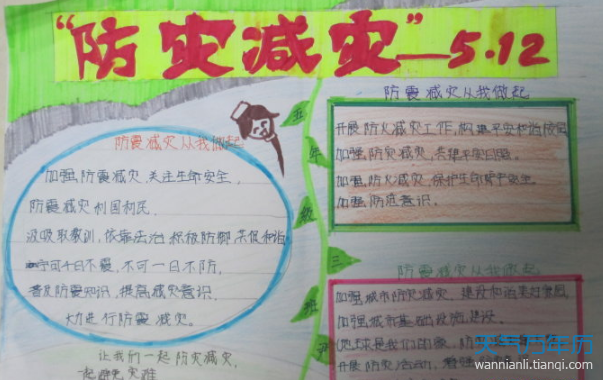 “防灾减灾”—5.12
防震减灾从我做起
加强防震减灾,关注生命安全,
防震减灾利国利民,
汲吸取教训,依靠法治积极防御共促和谐
宁可千日不震,不可一日不防,
普及防震知识,提高减灾意识,
大力进行防震减灾。
让我们一起防灾减灾,
起避免灾难
五年级三班
防震减灾从我做起
开展防火减灾工作,构建平安和谐校园
加强防灾减灾,共建平安
加强防火减灾,保护生命财产安全。
加强防范意识。
防震减灾从我做起
加强城市防灾减灾,建设和谐美好家园
加强城市基础设施建设。
地球是我们的家,
开展防灾活动,
天气万年历
wannianli.tianqi.com